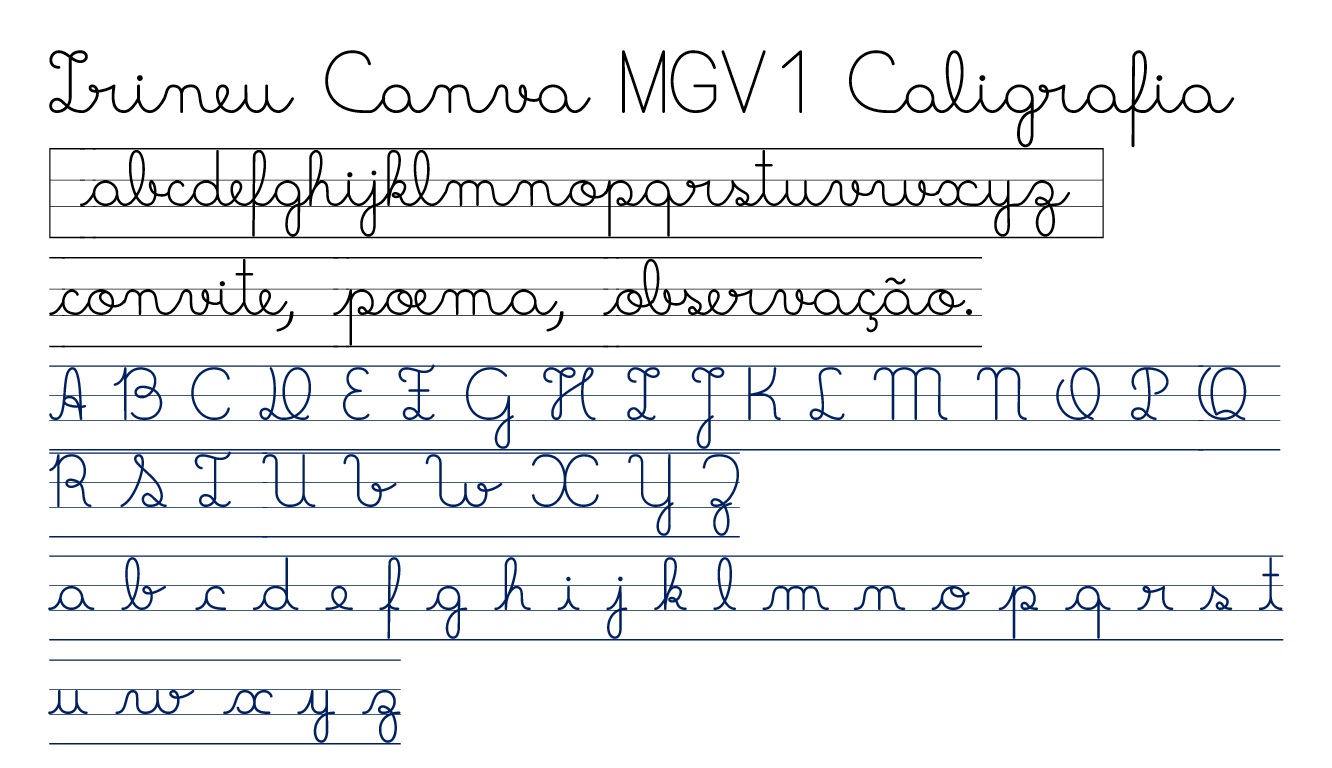 Irineu Canva MGV1 Caligrafia
abcdefghijklmnopqrstuvwxyz
convite, poema, observação.
A B C D E F G H I J K L M N O P Q
R S T U V W X Y Z
a b c d e f g h i j k l m n o p q r s t
u w x y z